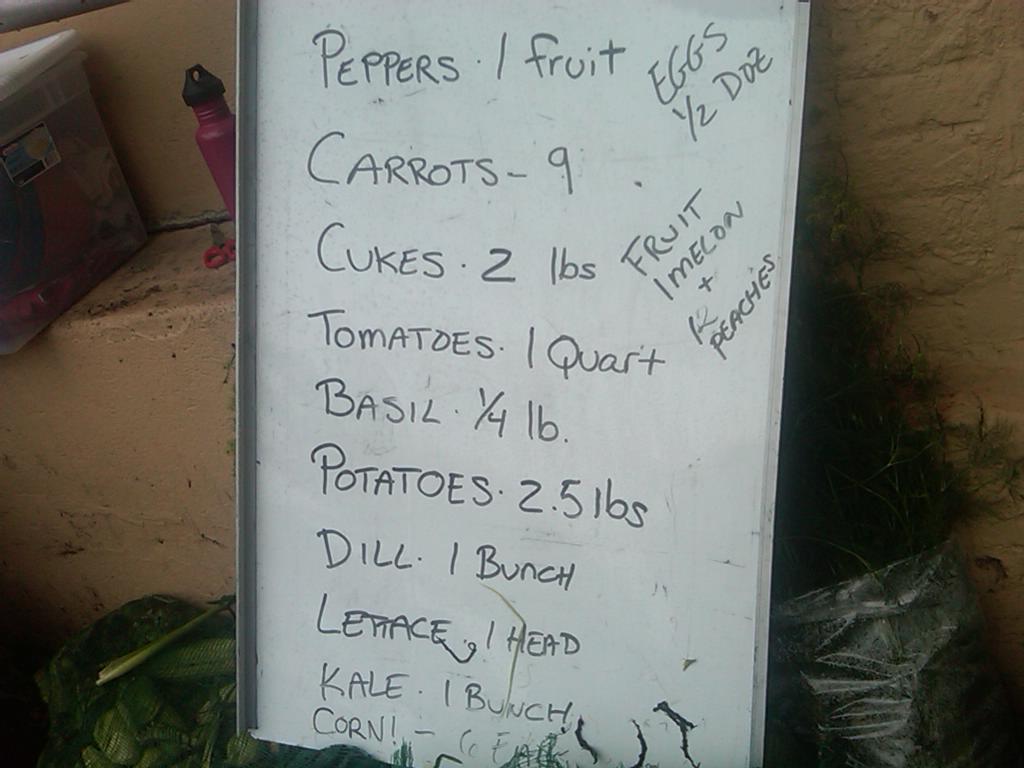 PEPPERS · 1 fruit
CARROTS - 9
CUKES · 2 lbs
TOMATOES · 1 Quart
BASIL · 1/4 lb.
POTATOES · 2.5 lbs
DILL · 1 BUNCH
LETTACE, 1 HEAD
KALE · 1 BUNCH
CORN! -
EGGS
1/2 DOZ
FRUIT
1 MELON
+
12
PEACHES